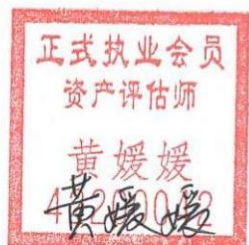 正式执业会员
资产评估师
黄媛媛
黄媛媛